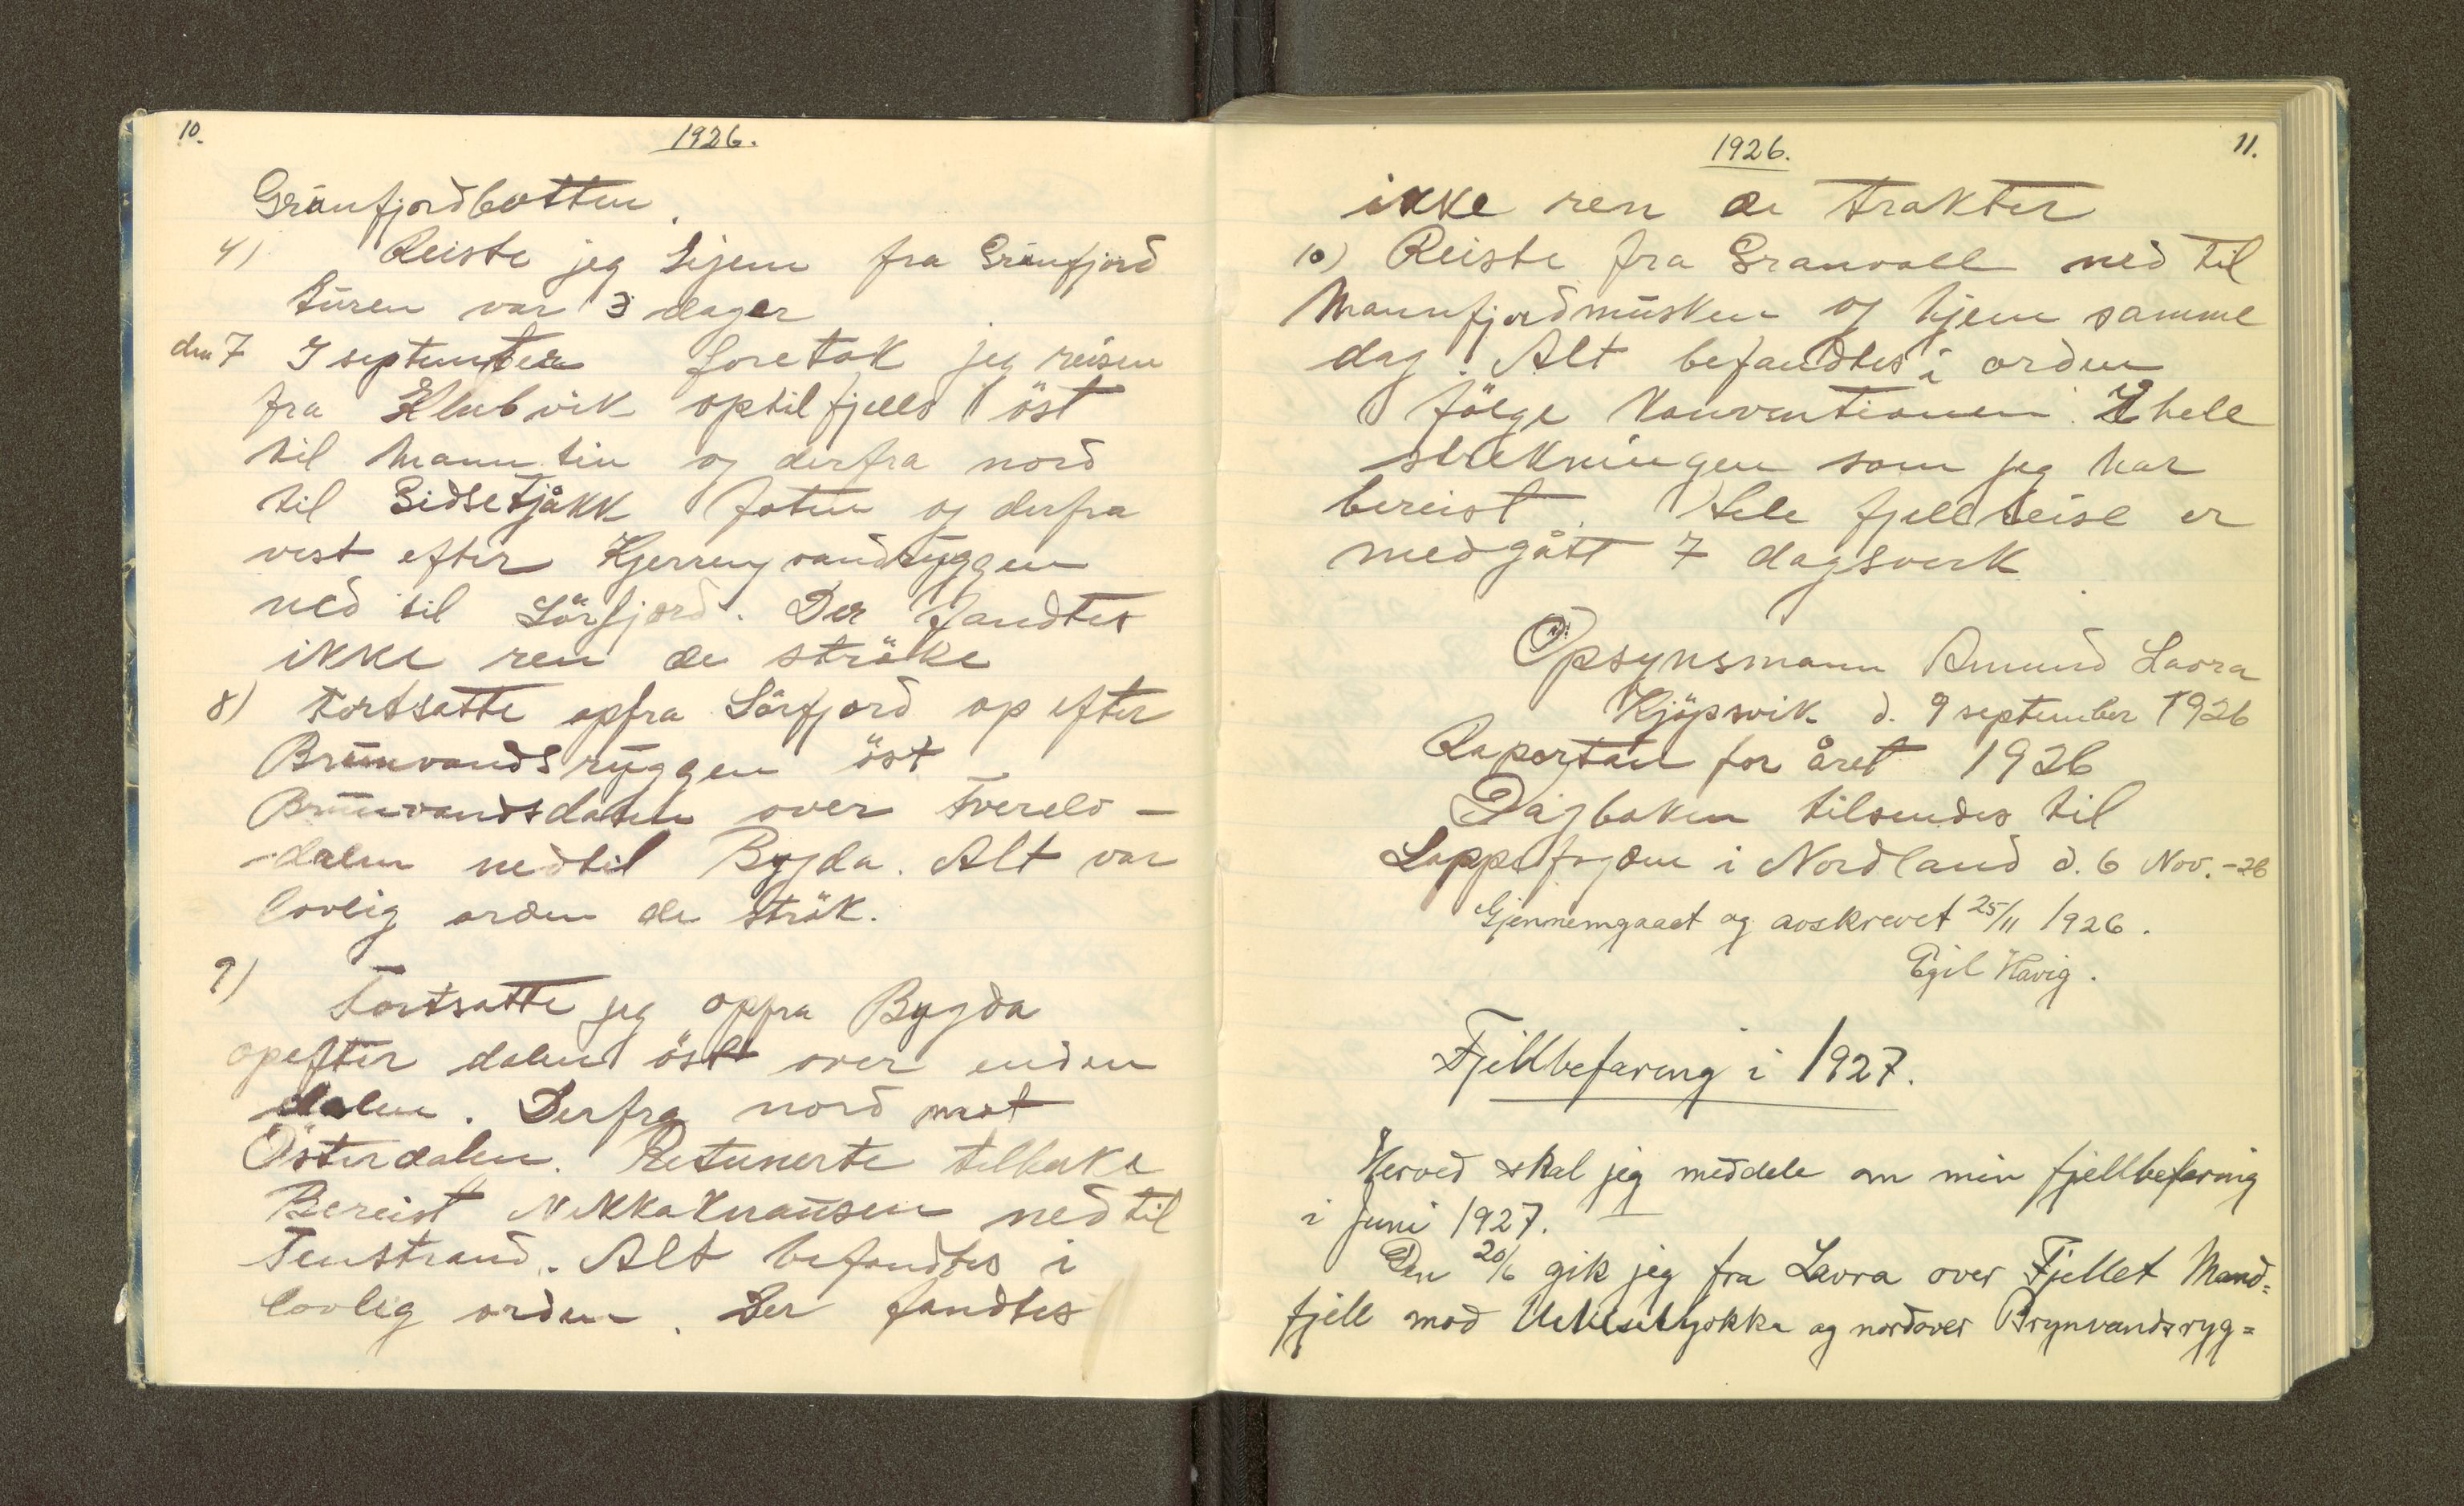 10.
1926.
Grünfjordbotten.
4) Reiste jeg hjem fra Grünfjord
türen var 3 dager
den 7 I september foretok jeg reisen
fra Klubvik optil fjells öst
til Manntin og derfra nord
til Sidsetjåkk foten og derfra
vest efter Kjerringvandryggen
ned til Sörfjord. Der fandtes
ikke ren de ströke
8) Fortsatte opfra Sörfjord op efter
Brünvandsryggen öst
Brünvandsdalen over Tverelv-
-dalen nedtil Bygda. Alt var
lovlig orden de strök.
9)
Fortsatte jeg oppra Bygda
opefter dalen öst over enden
dalen. Derfra nord mot
Österdalen. Retunerte tilbake
Bereist Nikkaknausen ned til
Tenstrand. Alt befandtes i
lovlig orden. Der fandtes
1926.
11.
ikke ren de trakter
10) Reiste fra Granvall ned til
Mannfjordmüsken og hjem samme
dag. Alt befandtes i orden
fölge Konventionen. I hele
strekningen som jeg har
bereist. Hele fjellreise er
medgått 7 dagsverk
Opsynsmann Amund Lavra
Kjöpsvik d. 9 september 1926
Raportan for året 1926
Dagboken tilsendes til
Lappefogden i Nordland d. 6 Nov. -26
Gjennemgaaet og avskrevet 25/11 1926.
Egil Havig.
Fjellbefaring i 1927.
Herved skal jeg meddele om min fjellbefaring
i Juni 1927.
Den 20/6 gik jeg fra Lavra over Fjellet Mand=
fjell mod og nordover Brynvandsryg=